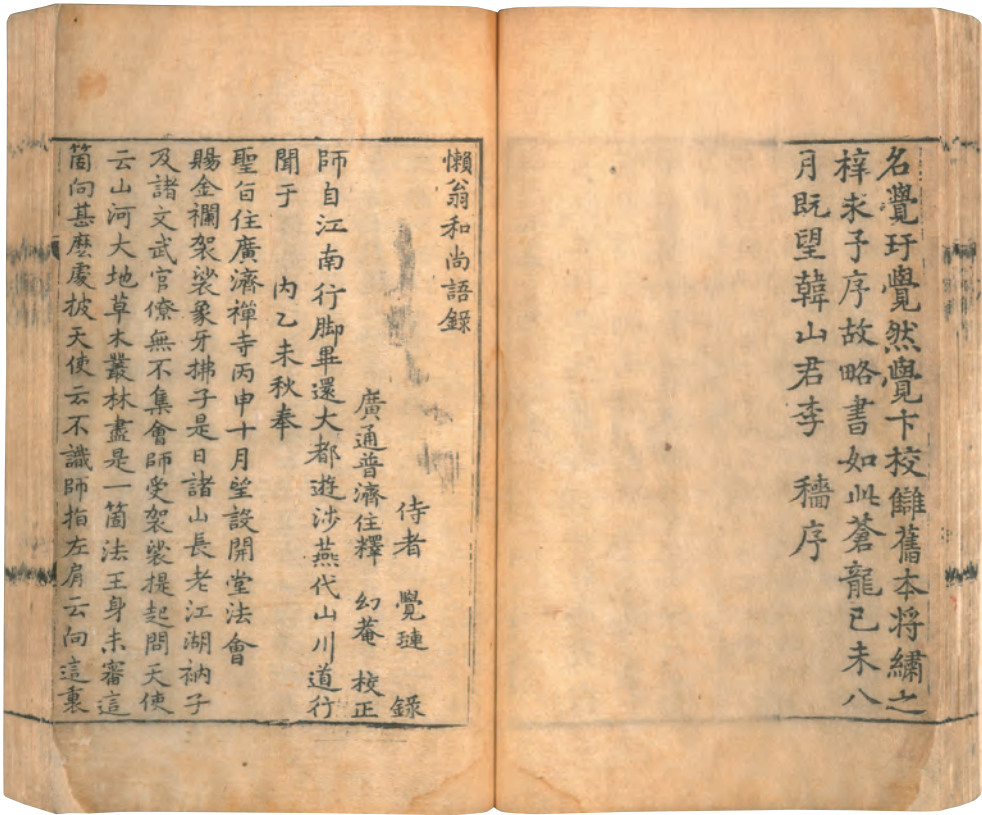 名覺玗覺然覺卞校讎舊本将繡之
梓求予序故略書如此蒼龍己未八
月既望韓山君李　穡序
懶翁和尚語錄
侍者　覺璉　錄
廣通普濟住釋　幻菴　校正
師自江南行脚畢還大都遊涉燕代山川道行
聞于　內乙未秋奉
聖旨住廣濟禪寺丙申十月望設開堂法會
賜金襴袈裟象牙拂子是日諸山長老江湖衲子
及諸文武官僚無不集會師受袈裟提起問天使
云山河大地草木叢林盡是一箇法王身未審這
箇向甚麽處披天使云不識師指左肩云向這裏